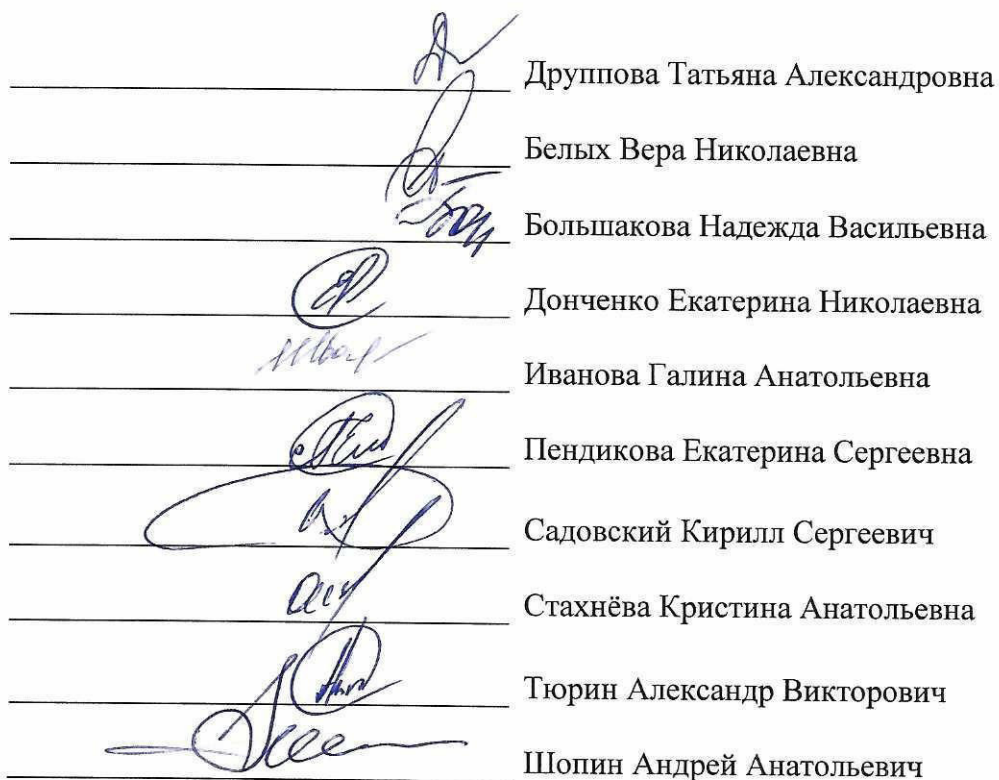 Друппова Татьяна Александровна
Белых Вера Николаевна
Большакова Надежда Васильевна
Донченко Екатерина Николаевна
Иванова Галина Анатольевна
Пендикова Екатерина Сергеевна
Садовский Кирилл Сергеевич
Стахнёва Кристина Анатольевна
Тюрин Александр Викторович
Шопин Андрей Анатольевич